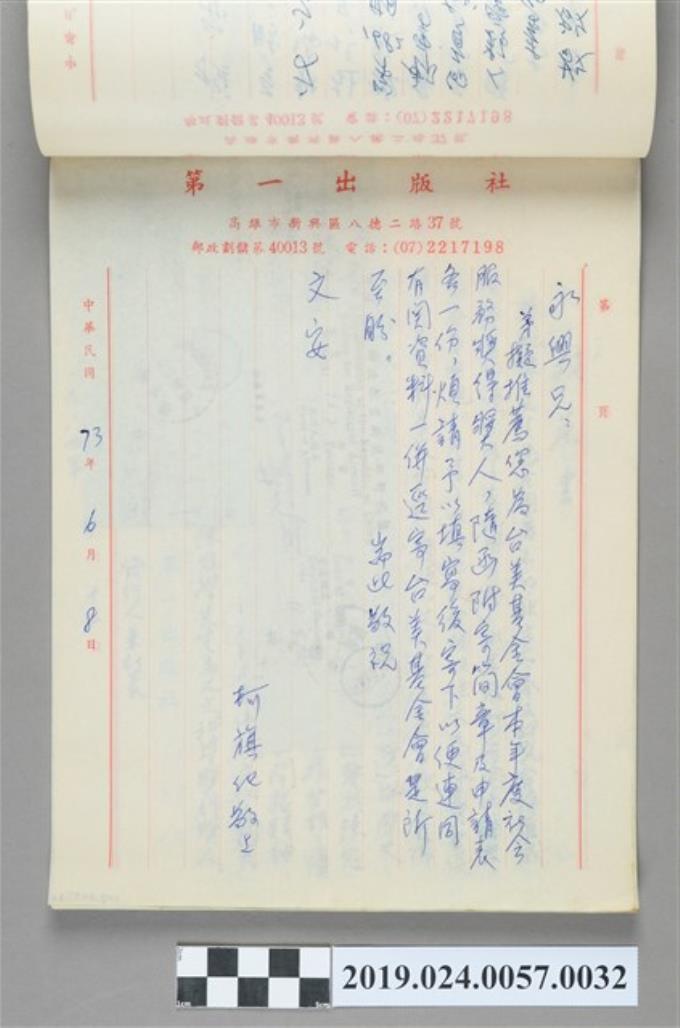 第一出版社
高雄市新興區八德二路37號
郵政劃儲第40013號 電話：(07)2217198
第 頁
永興兄：
弟擬推薦您為台美基金會本年度社会
服務獎得獎人，隨函附寄簡章及申請表
各一份，煩請予以填寫後寄下以便連同
有関資料一併逕寄台美基金會是所
至盼。 耑此敬祝
文安
柯旗化敬上
中華民國73年6月8日
2019.024.0057.0032